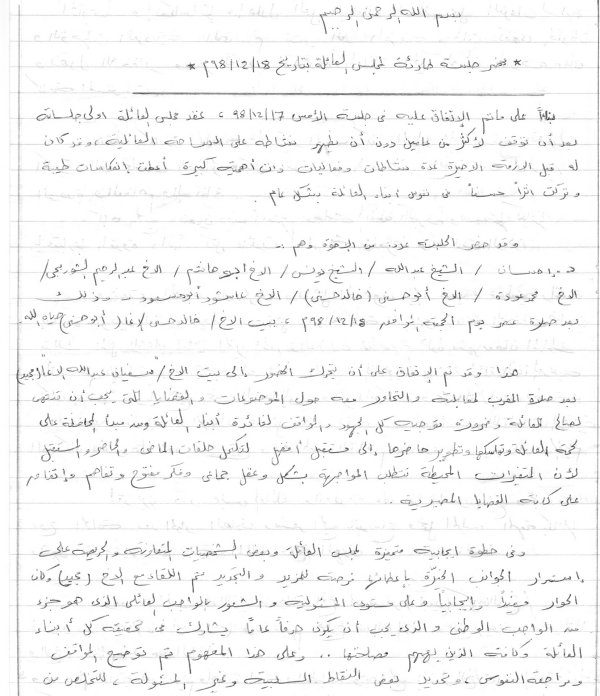 بسم الله الرحمن الرحيم
* محضر جلسة طارئة لمجلس العائلة بتاريخ 98/12/18م *
بناءً على ما تم الإتفاق عليه في جلسة الأمس 98/12/17، عقد مجلس العائلة أولى جلساته
بعد أن توقف لأكثر من عامين دون أن يظهر نشاطه على الساحة العائلية، وقد كان
له قبل الأزمة الأخيرة عدة نشاطات وفعاليات ذات أهمية كبيرة أعطت انعكاسات طيبة
وتركت أثراً حسناً في نفوس أبناء العائلة بشكل عام.
وقد حضر الجلسة عدد من الإخوة وهم :-
د. احسان / الشيخ عبدالله / الشيخ يونس / الاخ ابو هاشم / الاخ عبد الرحيم /
الاخ / الاخ أبو حسني (خالد حسني) / الاخ عاشور أبو مسعود وذلك
بعد صلاة عصر يوم الجمعة الموافق 98/12/18م، ببيت الاخ / خالد حسني الاغا (أبو حسني) حياه الله.
هذا وقد تم الإتفاق على أن يتحرك الحضور إلى بيت الاخ / سفيان عبدالله الاغا (مجيد)
بعد صلاة المغرب لمقابلته والتحاور معه حول الموضوعات والقضايا التي يجب أن تنتهي
لصالح العائلة وضرورة توحيد كل الجهود والمواقف لفائدة أبناء العائلة ومن مبدأ المحافظة على
لحمة العائلة وتماسكها وتطوير حاضرها إلى مستقبل أفضل لتكتمل حلقات الماضي والحاضر والمستقبل
لأن المتغيرات المحيطة تتطلب المواجهة بشكل وعقل جماعي وفكر مفتوح وتفاهم وإقتدار
على كافة القضايا المصيرية ..
وفي خطوة ايجابية متميزة لمجلس العائلة وبعض الشخصيات المتعاونة والحريصة على
إستمرار الجوانب الخيّرة بإعطائها فرصة للمزيد والتجديد تم اللقاء مع الاخ (مجيد) وكان
الحوار مفيداً وإيجابياً وعلى مستوى المسئولية والشعور بالواجب العائلي الذي هو جزء
من الواجب الوطني والذي يجب أن يكون هدفاً عاماً يشارك في تحقيقه كل أبناء
العائلة وكافة الذين يهمهم مصلحتها .. وعلى هذا المفهوم تم توضيح المواقف
ومراجعة النفوس، وتحديد بعض النقاط السلبية وغير المسئولة، للتخلص من